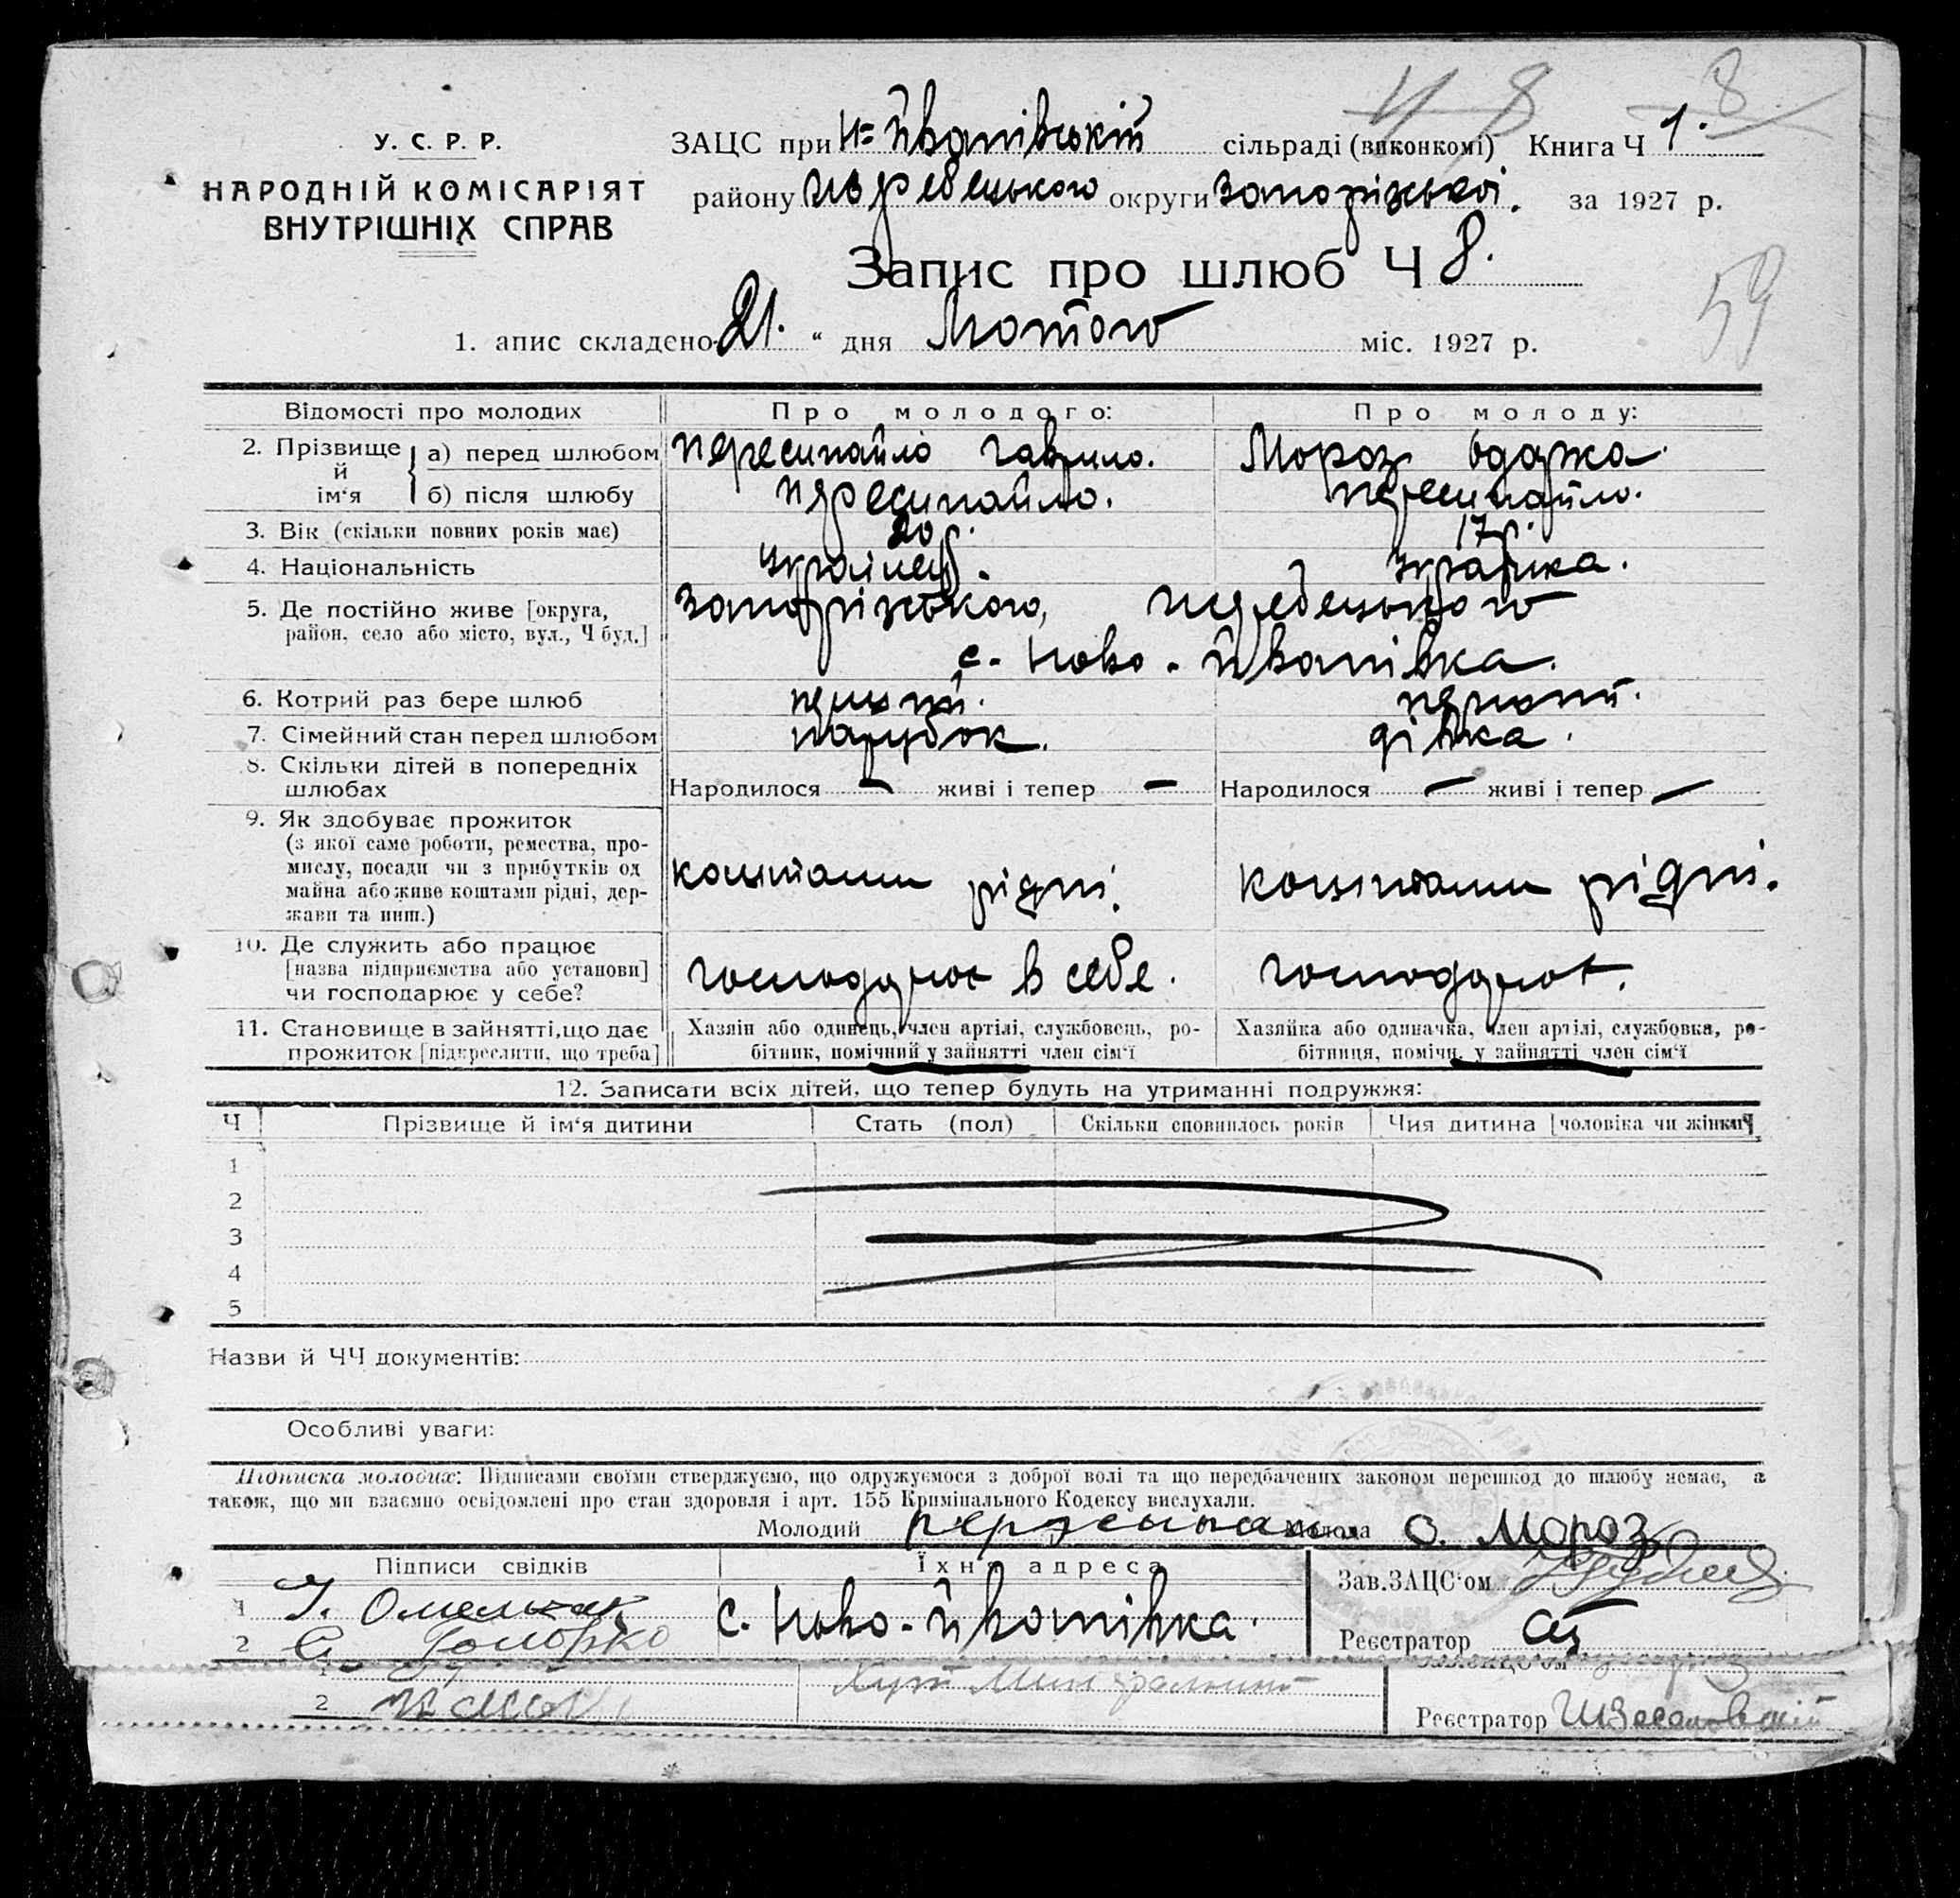 У. С. Р. Р.
НАРОДНІЙ КОМІСАРІЯТ
ВНУТРІШНІХ СПРАВ
ЗАЦС при Н-Йванівській сільраді (виконкомі) Книга Ч 1.
району округи Запоріжської. за 1927 р.
Запис про шлюб Ч 8.
1. апис складено 21. " дня Лютого міс. 1927 р.
4 8
8
59
Відомості про молодих Про молодого: Про молоду:
2. Прізвище й ім'я а) перед шлюбом Пересипайло Гаврило. Мороз Одарка.
б) після шлюбу Пересипайло. Пересипайло.
3. Вік (скільки повних років має) 20 р. 17 р.
4. Національність Українец. Українка.
5. Де постійно живе [округа, Запоріжського,
район, село або місто, вул., Ч буд.] с. Ново-Йванівка.
6. Котрий раз бере шлюб перший. перший.
7. Сімейний стан перед шлюбом парубок. дівка.
8. Скільки дітей в попередніх шлюбах Народилося — живі і тепер — Народилося — живі і тепер —
9. Як здобуває прожиток
(з якої саме роботи, ремества, про-
мислу, посади чи з прибутків од
майна або живе коштами рідні, дер-
жави та инш.) коштами рідні. коштами рідні.
10. Де служить або працює
[назва підприємства або установи]
чи господарює у себе? господарює в себе. господарює.
11. Становище в зайнятті, що дає Хазяін або одинець, член артілі, службовець, ро- Хазяйка або одиначка, член артілі, службовка, ро-
прожиток [підкреслити, що треба] бітник, помічний у зайнятті член сім'ї бітниця, помічн. у зайнятті член сім'ї
12. Записати всіх дітей, що тепер будуть на утриманні подружжя:
Ч Прізвище й ім'я дитини Стать (пол) Скільки сповнилось років Чия дитина [чоловіка чи жінки]
1
2
3
4
5
Назви й ЧЧ документів:
Особливі уваги:
Підписка молодих: Підписами своїми стверджуємо, що одружуємося з доброї волі та що передбачених законом перешкод до шлюбу немає, а
також, що ми взаємно освідомлені про стан здоровля і арт. 155 Кримінального Кодексу вислухали.
Молодий Молода О. Мороз
Підписи свідків Їхня адреса Зав. ЗАЦС'ом
1 с. Ново-Йванівка.
2 Реєстратор
1 Зав. ЗАЦС'ом
2 Хут Реєстратор